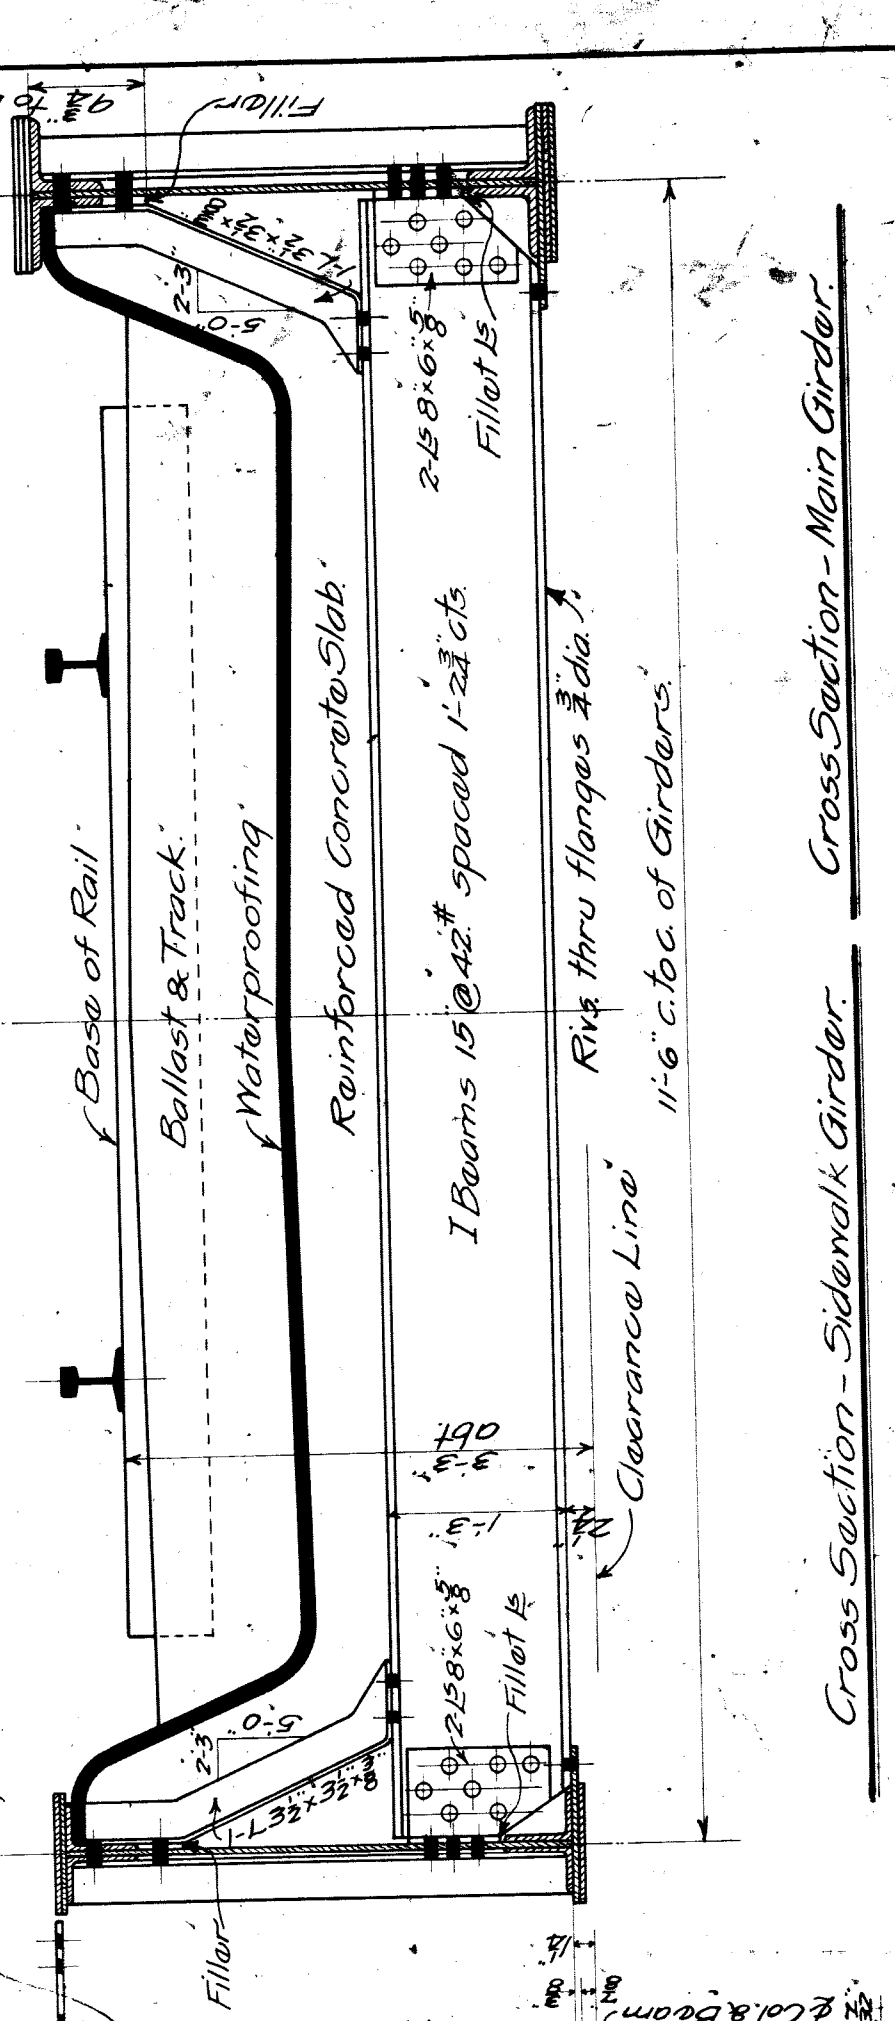 Filler
9 3/4" to
1-L 3 1/2" x 3 1/2" x 3/8"
2'-3"
5'-0"
2-Ls 8" x 6" x 5/8"
Fillet Ls
Base of Rail
Ballast & Track.
Waterproofing
Reinforced Concrete Slab.
I Beams 15" @ 42.# spaced 1'-2 3/4" cts.
Rivs. thru flanges 3/4" dia.
11'-6" c. to c. of Girders.
Clearance Line
3'-3"
abt.
1'-3"
2 1/4"
2-Ls 8" x 6" x 5/8"
Fillet Ls
2'-3"
5'-0"
1-L 3 1/2" x 3 1/2" x 3/8"
Filler
Cross Section - Sidewalk Girder.
Cross Section - Main Girder.
1/4"
¢ Col. & Beam